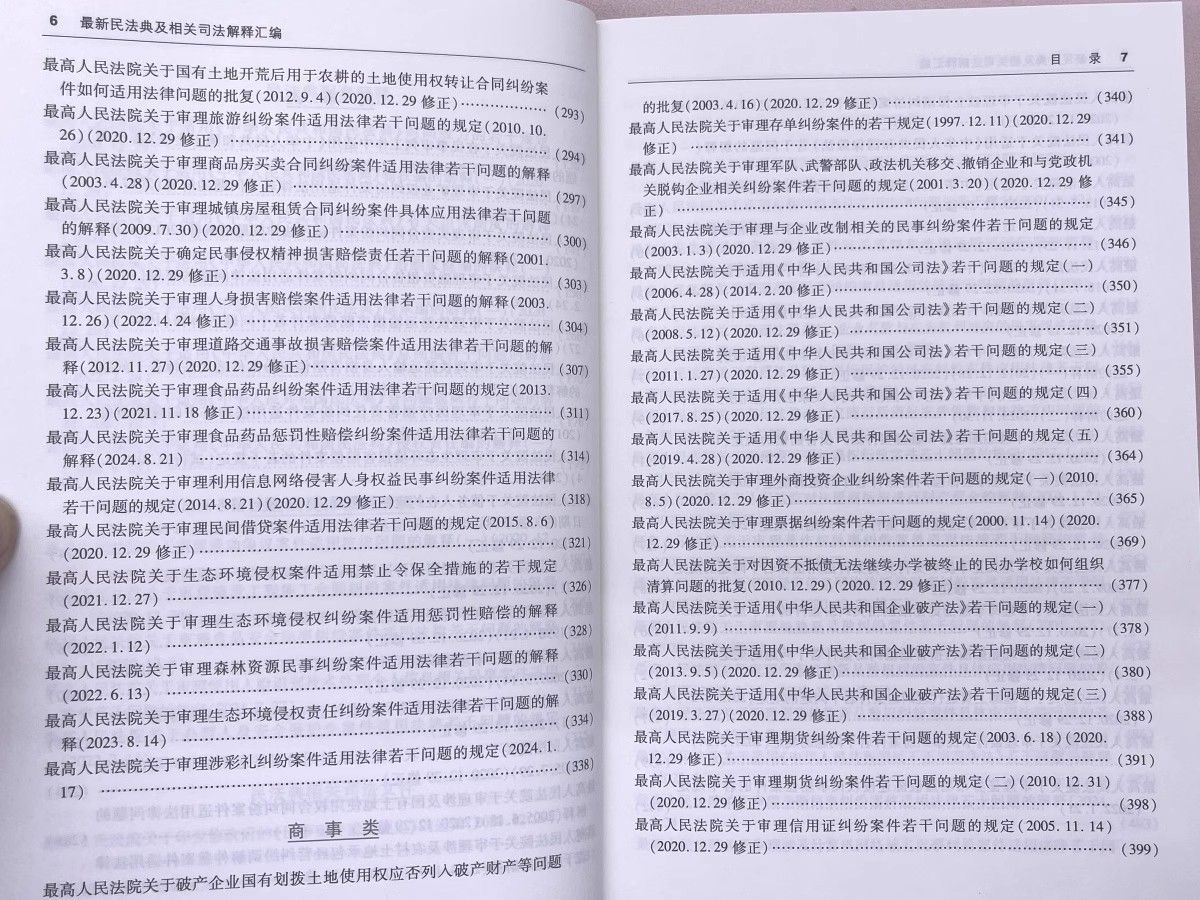 6 最新民法典及相关司法解释汇编
最高人民法院关于国有土地开荒后用于农耕的土地使用权转让合同纠纷案
件如何适用法律问题的批复(2012.9.4)(2020.12.29修正)………………(293)
最高人民法院关于审理旅游纠纷案件适用法律若干问题的规定(2010.10.
26)(2020.12.29修正)………………(294)
最高人民法院关于审理商品房买卖合同纠纷案件适用法律若干问题的解释
(2003.4.28)(2020.12.29修正)………………(297)
最高人民法院关于审理城镇房屋租赁合同纠纷案件具体应用法律若干问题
的解释(2009.7.30)(2020.12.29修正)………………(300)
最高人民法院关于确定民事侵权精神损害赔偿责任若干问题的解释(2001.
3.8)(2020.12.29修正)………………(303)
最高人民法院关于审理人身损害赔偿案件适用法律若干问题的解释(2003.
12.26)(2022.4.24修正)………………(304)
最高人民法院关于审理道路交通事故损害赔偿案件适用法律若干问题的解
释(2012.11.27)(2020.12.29修正)………………(307)
最高人民法院关于审理食品药品纠纷案件适用法律若干问题的规定(2013.
12.23)(2021.11.18修正)………………(311)
最高人民法院关于审理食品药品惩罚性赔偿纠纷案件适用法律若干问题的
解释(2024.8.21)………………(314)
最高人民法院关于审理利用信息网络侵害人身权益民事纠纷案件适用法律
若干问题的规定(2014.8.21)(2020.12.29修正)………………(318)
最高人民法院关于审理民间借贷案件适用法律若干问题的规定(2015.8.6)
(2020.12.29修正)………………(321)
最高人民法院关于生态环境侵权案件适用禁止令保全措施的若干规定
(2021.12.27)………………(326)
最高人民法院关于审理生态环境侵权纠纷案件适用惩罚性赔偿的解释
(2022.1.12)………………(328)
最高人民法院关于审理森林资源民事纠纷案件适用法律若干问题的解释
(2022.6.13)………………(330)
最高人民法院关于审理生态环境侵权责任纠纷案件适用法律若干问题的解
释(2023.8.14)………………(334)
最高人民法院关于审理涉彩礼纠纷案件适用法律若干问题的规定(2024.1.
17)………………(338)
商事类
最高人民法院关于破产企业国有划拨土地使用权应否列入破产财产等问题
目录 7
的批复(2003.4.16)(2020.12.29修正)………………(340)
最高人民法院关于审理存单纠纷案件的若干规定(1997.12.11)(2020.12.29
修正)………………(341)
最高人民法院关于审理军队、武警部队、政法机关移交、撤销企业和与党政机
关脱钩企业相关纠纷案件若干问题的规定(2001.3.20)(2020.12.29修
正)………………(345)
最高人民法院关于审理与企业改制相关的民事纠纷案件若干问题的规定
(2003.1.3)(2020.12.29修正)………………(346)
最高人民法院关于适用《中华人民共和国公司法》若干问题的规定(一)
(2006.4.28)(2014.2.20修正)………………(350)
最高人民法院关于适用《中华人民共和国公司法》若干问题的规定(二)
(2008.5.12)(2020.12.29修正)………………(351)
最高人民法院关于适用《中华人民共和国公司法》若干问题的规定(三)
(2011.1.27)(2020.12.29修正)………………(355)
最高人民法院关于适用《中华人民共和国公司法》若干问题的规定(四)
(2017.8.25)(2020.12.29修正)………………(360)
最高人民法院关于适用《中华人民共和国公司法》若干问题的规定(五)
(2019.4.28)(2020.12.29修正)………………(364)
最高人民法院关于审理外商投资企业纠纷案件若干问题的规定(一)(2010.
8.5)(2020.12.29修正)………………(365)
最高人民法院关于审理票据纠纷案件若干问题的规定(2000.11.14)(2020.
12.29修正)………………(369)
最高人民法院关于对因资不抵债无法继续办学被终止的民办学校如何组织
清算问题的批复(2010.12.29)(2020.12.29修正)………………(377)
最高人民法院关于适用《中华人民共和国企业破产法》若干问题的规定(一)
(2011.9.9)………………(378)
最高人民法院关于适用《中华人民共和国企业破产法》若干问题的规定(二)
(2013.9.5)(2020.12.29修正)………………(380)
最高人民法院关于适用《中华人民共和国企业破产法》若干问题的规定(三)
(2019.3.27)(2020.12.29修正)………………(388)
最高人民法院关于审理期货纠纷案件若干问题的规定(2003.6.18)(2020.
12.29修正)………………(391)
最高人民法院关于审理期货纠纷案件若干问题的规定(二)(2010.12.31)
(2020.12.29修正)………………(398)
最高人民法院关于审理信用证纠纷案件若干问题的规定(2005.11.14)
(2020.12.29修正)………………(399)